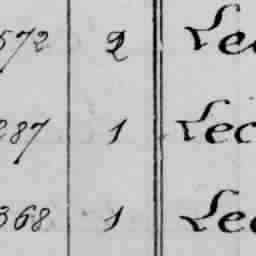 572 2 Lec
287 1 Lec
368 1 Lec